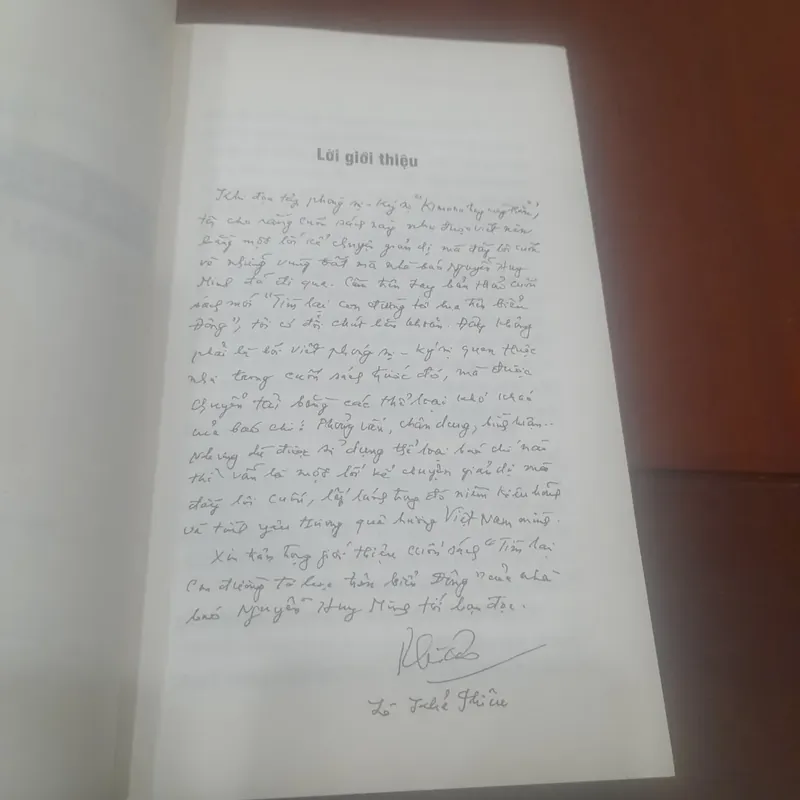 Lời giới thiệu
Khi đọc tập phóng sự - ký sự "Kimono tay
tôi cho rằng cuốn sách này như được viết nên
bằng một lối kể chuyện giản dị mà đầy lôi cuốn
về những vùng đất mà nhà báo Nguyễn Huy
Minh đã đi qua. Cầm trên tay bản thảo cuốn
sách mới "Tìm lại con đường tơ lụa trên biển
Đông", tôi có đôi chút băn khoăn. Đây không
phải là lối viết phóng sự - ký sự quen thuộc
như trong cuốn sách trước đó, mà được
chuyển tải bằng các thể loại khác nhau
của báo chí: Phỏng vấn, chân dung, bình luận...
Nhưng dù được sử dụng thể loại báo chí nào
thì vẫn là một lối kể chuyện giản dị mà
đầy lôi cuốn, lấp lánh trong đó niềm kiêu hãnh
và tình yêu thương quê hương Việt Nam mình.
Xin trân trọng giới thiệu cuốn sách "Tìm lại
con đường tơ lụa trên biển Đông" của nhà
báo Nguyễn Huy Minh tới bạn đọc.
Lê Khả Phiêu